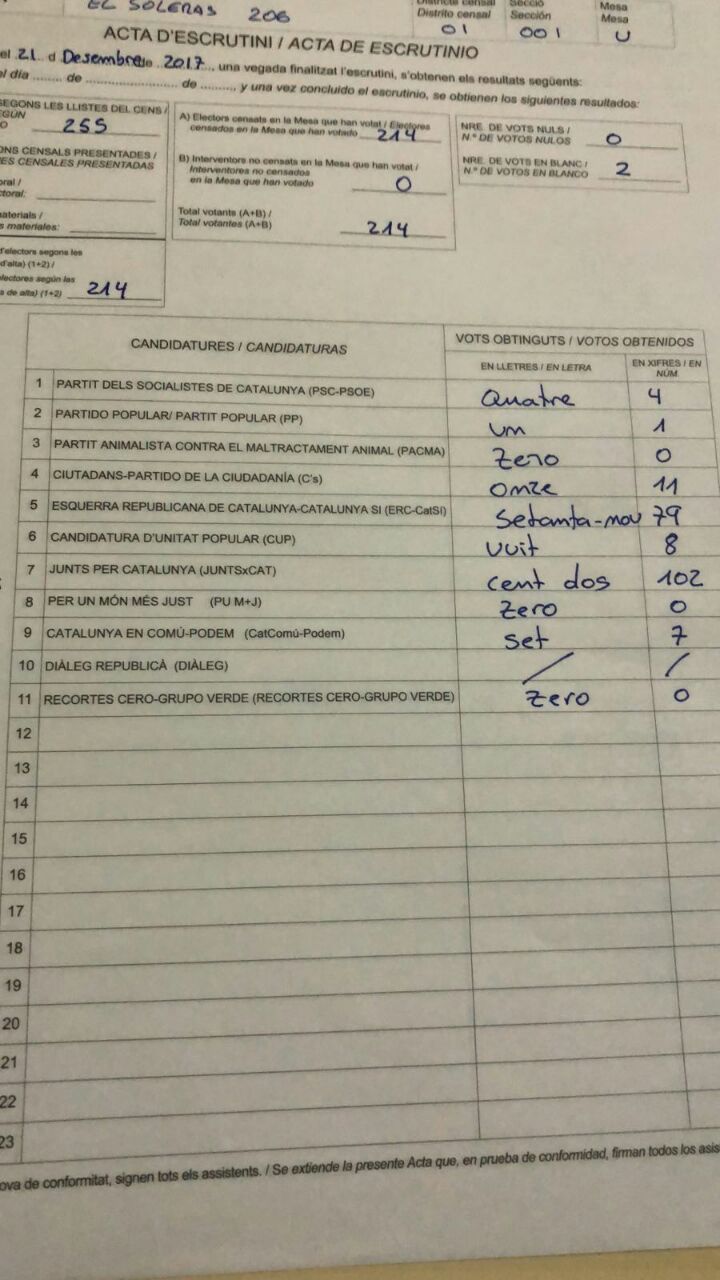 EL SOLERAS 206
Districte censal Secció Mesa
Distrito censal Sección Mesa
01 001 U
ACTA D'ESCRUTINI / ACTA DE ESCRUTINIO
el 21 d Desembre de 2017, una vegada finalitzat l'escrutini, s'obtenen els resultats següents:
el día ........ de ........................ de ........., y una vez concluido el escrutinio, se obtienen los siguientes resultados:
SEGONS LES LLISTES DEL CENS /
255
ONS CENSALS PRESENTADES /
ES CENSALES PRESENTADAS
oral /
ctoral:
materials /
s materiales:
d'electors segons les
d'alta) (1+2) /
lectores según las
s de alta) (1+2) 214
A) Electors censats en la Mesa que han votat / Electores
censados en la Mesa que han votado 214
B) Interventors no censats en la Mesa que han votat /
Interventores no censados
en la Mesa que han votado 0
Total votants (A+B) /
Total votantes (A+B) 214
NRE. DE VOTS NULS /
N.º DE VOTOS NULOS 0
NRE. DE VOTS EN BLANC /
N.º DE VOTOS EN BLANCO 2
CANDIDATURES / CANDIDATURAS
VOTS OBTINGUTS / VOTOS OBTENIDOS
EN LLETRES / EN LETRA
EN XIFRES / EN
NÚM.
1 PARTIT DELS SOCIALISTES DE CATALUNYA (PSC-PSOE) Quatre 4
2 PARTIDO POPULAR/ PARTIT POPULAR (PP) um 1
3 PARTIT ANIMALISTA CONTRA EL MALTRACTAMENT ANIMAL (PACMA) Zero 0
4 CIUTADANS-PARTIDO DE LA CIUDADANÍA (C's) Onze 11
5 ESQUERRA REPUBLICANA DE CATALUNYA-CATALUNYA SÍ (ERC-CatSí) Setanta-nou 79
6 CANDIDATURA D'UNITAT POPULAR (CUP) vuit 8
7 JUNTS PER CATALUNYA (JUNTSxCAT) cent dos 102
8 PER UN MÓN MÉS JUST (PU M+J) Zero 0
9 CATALUNYA EN COMÚ-PODEM (CatComú-Podem) set 7
10 DIÀLEG REPUBLICÀ (DIÀLEG) / /
11 RECORTES CERO-GRUPO VERDE (RECORTES CERO-GRUPO VERDE) Zero 0
12
13
14
15
16
17
18
19
20
21
22
23
ova de conformitat, signen tots els assistents. / Se extiende la presente Acta que, en prueba de conformidad, firman todos los asis